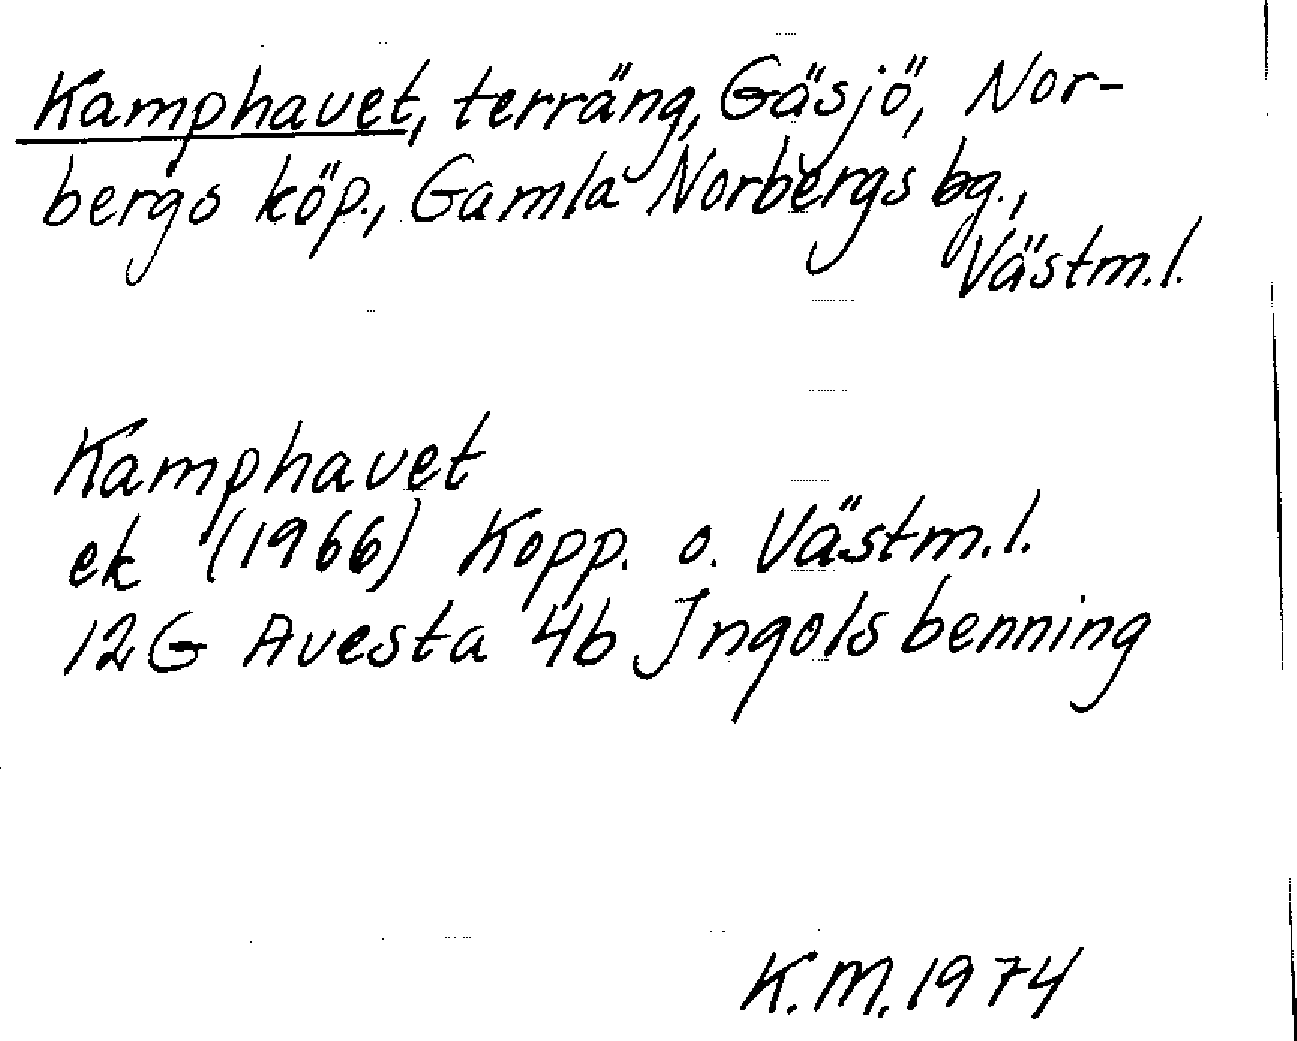 Kamphavet, terräng, Gäsjö, Nor-
bergs köp., Gamla Norbergs bg.,
Västm.l.
Kamphavet
ek (1966) Kopp. o. Västm.l.
12G Avesta 4b Ingolsbenning
K.M. 1974